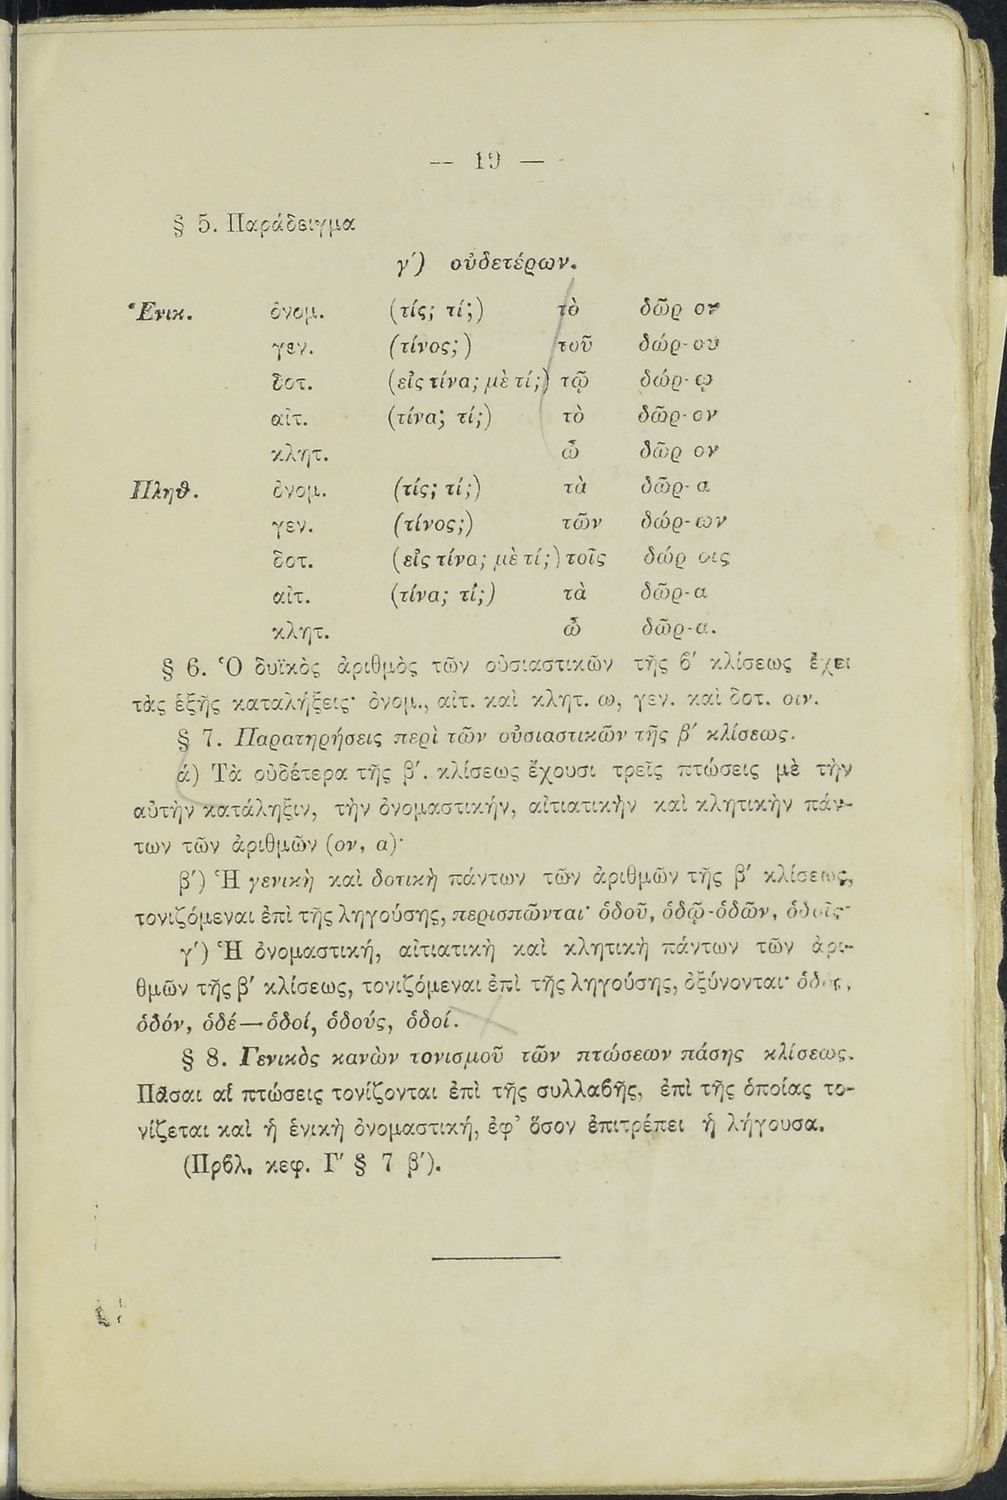 — 19 —
§ 5. Παράδειγμα
γ′) οὐδετέρων.
Ἑνικ. ὀνομ. (τίς; τί;) τὸ δῶρ ον
γεν. (τίνος;) τοῦ δώρ-ου
δοτ. (εἰς τίνα; μὲ τί;) τῷ δώρ-ῳ
αἰτ. (τίνα; τί;) τὸ δῶρ-ον
κλητ. ὦ δῶρ ον
Πληθ. ὀνομ. (τίς; τί;) τὰ δῶρ-α
γεν. (τίνος;) τῶν δώρ-ων
δοτ. (εἰς τίνα; μὲ τί;) τοῖς δώρ οις
αἰτ. (τίνα; τί;) τὰ δῶρ-α
κλητ. ὦ δῶρ-α.
§ 6. Ὁ δυϊκὸς ἀριθμὸς τῶν οὐσιαστικῶν τῆς ϐ′ κλίσεως ἔχει
τὰς ἑξῆς καταλήξεις· ὀνομ., αἰτ. καὶ κλητ. ω, γεν. καὶ δοτ. οιν.
§ 7. Παρατηρήσεις περὶ τῶν οὐσιαστικῶν τῆς β′ κλίσεως.
ά) Τὰ οὐδέτερα τῆς β′. κλίσεως ἔχουσι τρεῖς πτώσεις μὲ τὴν
αὐτὴν κατάληξιν, τὴν ὀνομαστικήν, αἰτιατικὴν καὶ κλητικὴν πάν-
των τῶν ἀριθμῶν (ον, α)·
β′) Ἡ γενικὴ καὶ δοτικὴ πάντων τῶν ἀριθμῶν τῆς β′ κλίσεως,
τονιζόμεναι ἐπὶ τῆς ληγούσης, περισπῶνται· ὁδοῦ, ὁδῷ-ὁδῶν, ὁδοῖς·
γ′) Ἡ ὀνομαστική, αἰτιατικὴ καὶ κλητικὴ πάντων τῶν ἀρι-
θμῶν τῆς β′ κλίσεως, τονιζόμεναι ἐπὶ τῆς ληγούσης, ὀξύνονται· ὁδός,
ὁδόν, ὁδέ—ὁδοί, ὁδούς, ὁδοί.
§ 8. Γενικὸς κανὼν τονισμοῦ τῶν πτώσεων πάσης κλίσεως.
Πᾶσαι αἱ πτώσεις τονίζονται ἐπὶ τῆς συλλαϐῆς, ἐπὶ τῆς ὁποίας το-
νίζεται καὶ ἡ ἑνικὴ ὀνομαστική, ἐφ’ ὅσον ἐπιτρέπει ἡ λήγουσα.
(Πρϐλ. κεφ. Γ′ § 7 β′).